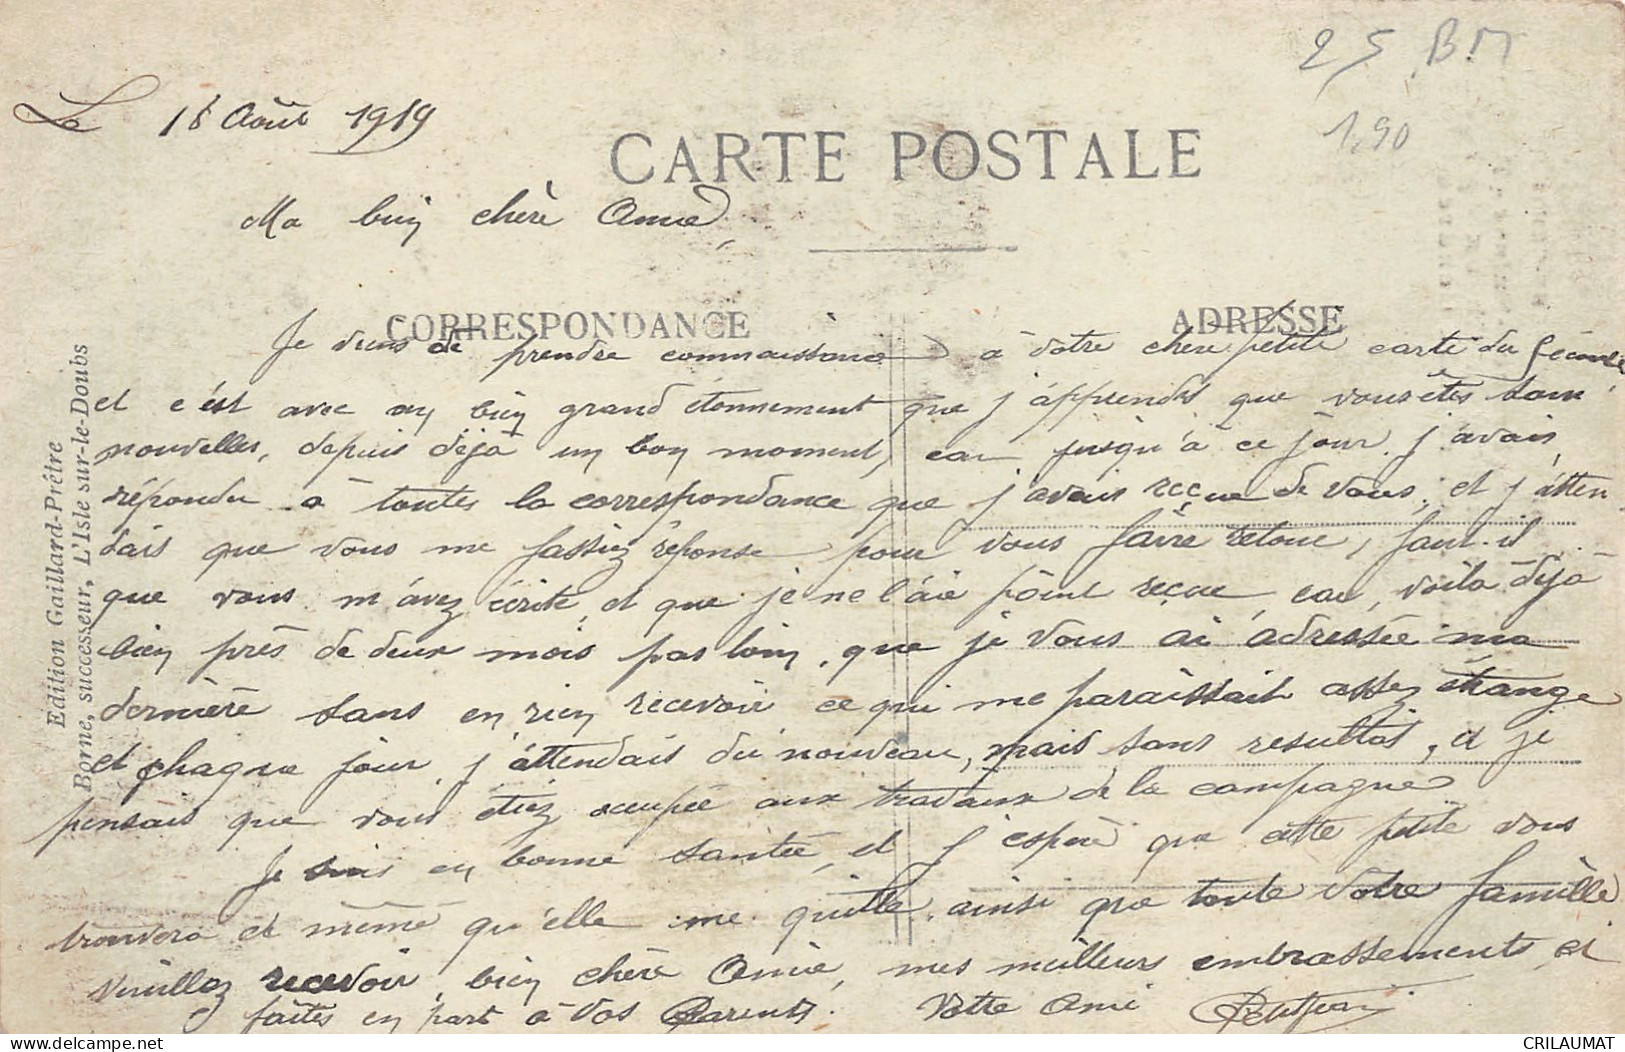 25 BM
1,90
Le 18 Août 1919
CARTE POSTALE
Ma bien chère Amie,
CORRESPONDANCE
ADRESSE
Je viens de prendre connaissance à votre chère petite carte du
et c'est avec un bien grand étonnement que j'apprends que vous êtes sans
nouvelles, depuis déjà un bon moment, car jusqu'à ce jour j'avais
répondu à toutes la correspondance que j'avais reçue de vous, et j'atten
dais que vous me fassiez réponse pour vous faire retour, faut-il
que vous m'avez écrite, et que je ne l'aie point reçue, car, voilà déjà
bien près de deux mois pas loin, que je vous ai adressée ma
dernière sans en rien recevoir ce qui me paraissait assez étrange
et chaque jour j'attendais du nouveau, mais sans resultat, et je
pensais que vous étiez occupée aux travaux de la campagne
Je suis en bonne santée, et j'espère que cette petite vous
trouvera et même qu'elle me quitte, ainsi que toute votre famille
Veuillez recevoir, bien chère Amie, mes meilleurs embrassements, et
faites en part à vos Parents. Votre Ami
Edition Gaillard-Prêtre
Borne, successeur, L'Isle sur-le-Doubs
CRILAUMAT